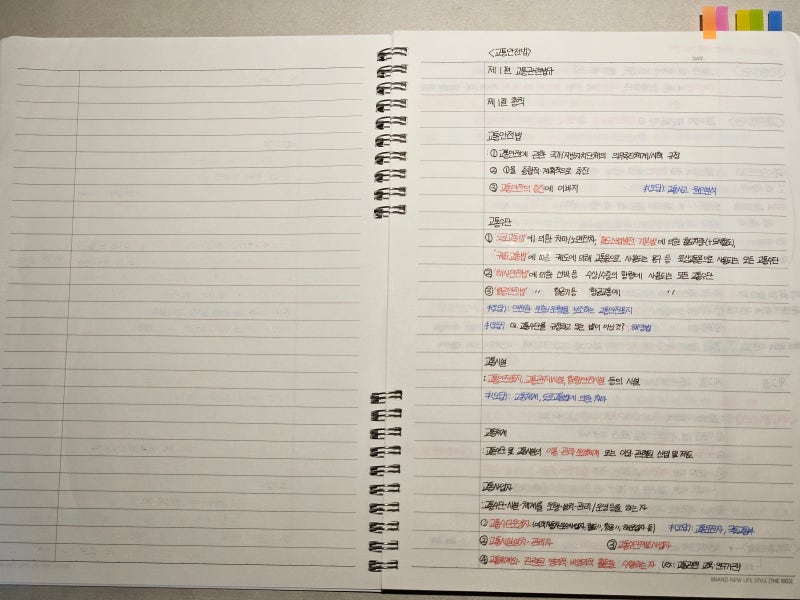 <교통안전법>
DATE.
제1편 교통관련법규
제1절 총칙
교통안전법
: ① 교통안전에 관한 국가/지방자치단체의 의무·추진체계/시책 규정
② ①를 종합적·계획적으로 추진
③ 교통안전의 증진에 이바지 #(오답): 교통사고 원인분석
교통수단
① '도로교통법'에 의한 차마/노면전차, '철도산업발전 기본법'에 의한 철도차량(+도시철도),
'궤도교통법'에 따른 궤도에 의해 교통용으로 사용되는 용구 등 육상교통용으로 사용되는 모든 교통수단
② '해사안전법'에 의한 선박 등 수상/수중의 항행에 사용되는 모든 교통수단
③ '항공안전법' 〃 항공기 등 항공교통에 〃 〃
#(오답): 안전한 운행/운항을 보조하는 교통안전표지
#(오답) Q. 교통수단을 규정하고 있는 법이 아닌 것? : 해경법
교통시설
: 교통안전표지, 교통관제시설, 항행안전시설 등의 시설
#(오답): 교통체계, 도로교통법에 의한 차마
교통체계
: 교통수단 및 교통시설의 이용·관리·운영체계 또는 이와 관련된 산업 및 제도
교통사업자
: 교통수단·시설·체계를 운행·설치·관리/운영 등을 하는 자
① 교통수단운영자 #(오답): 교통운전자, 국토교통부
② 교통시설설치·관리자 ③ 교통수단제조사업자
④ 교통체계와 관련된 영리적·비영리적 활동을 수행하는 자 (ex: 교통관련 교육·연구기관)
BRAND NEW LIFE STYLE [THE RED]